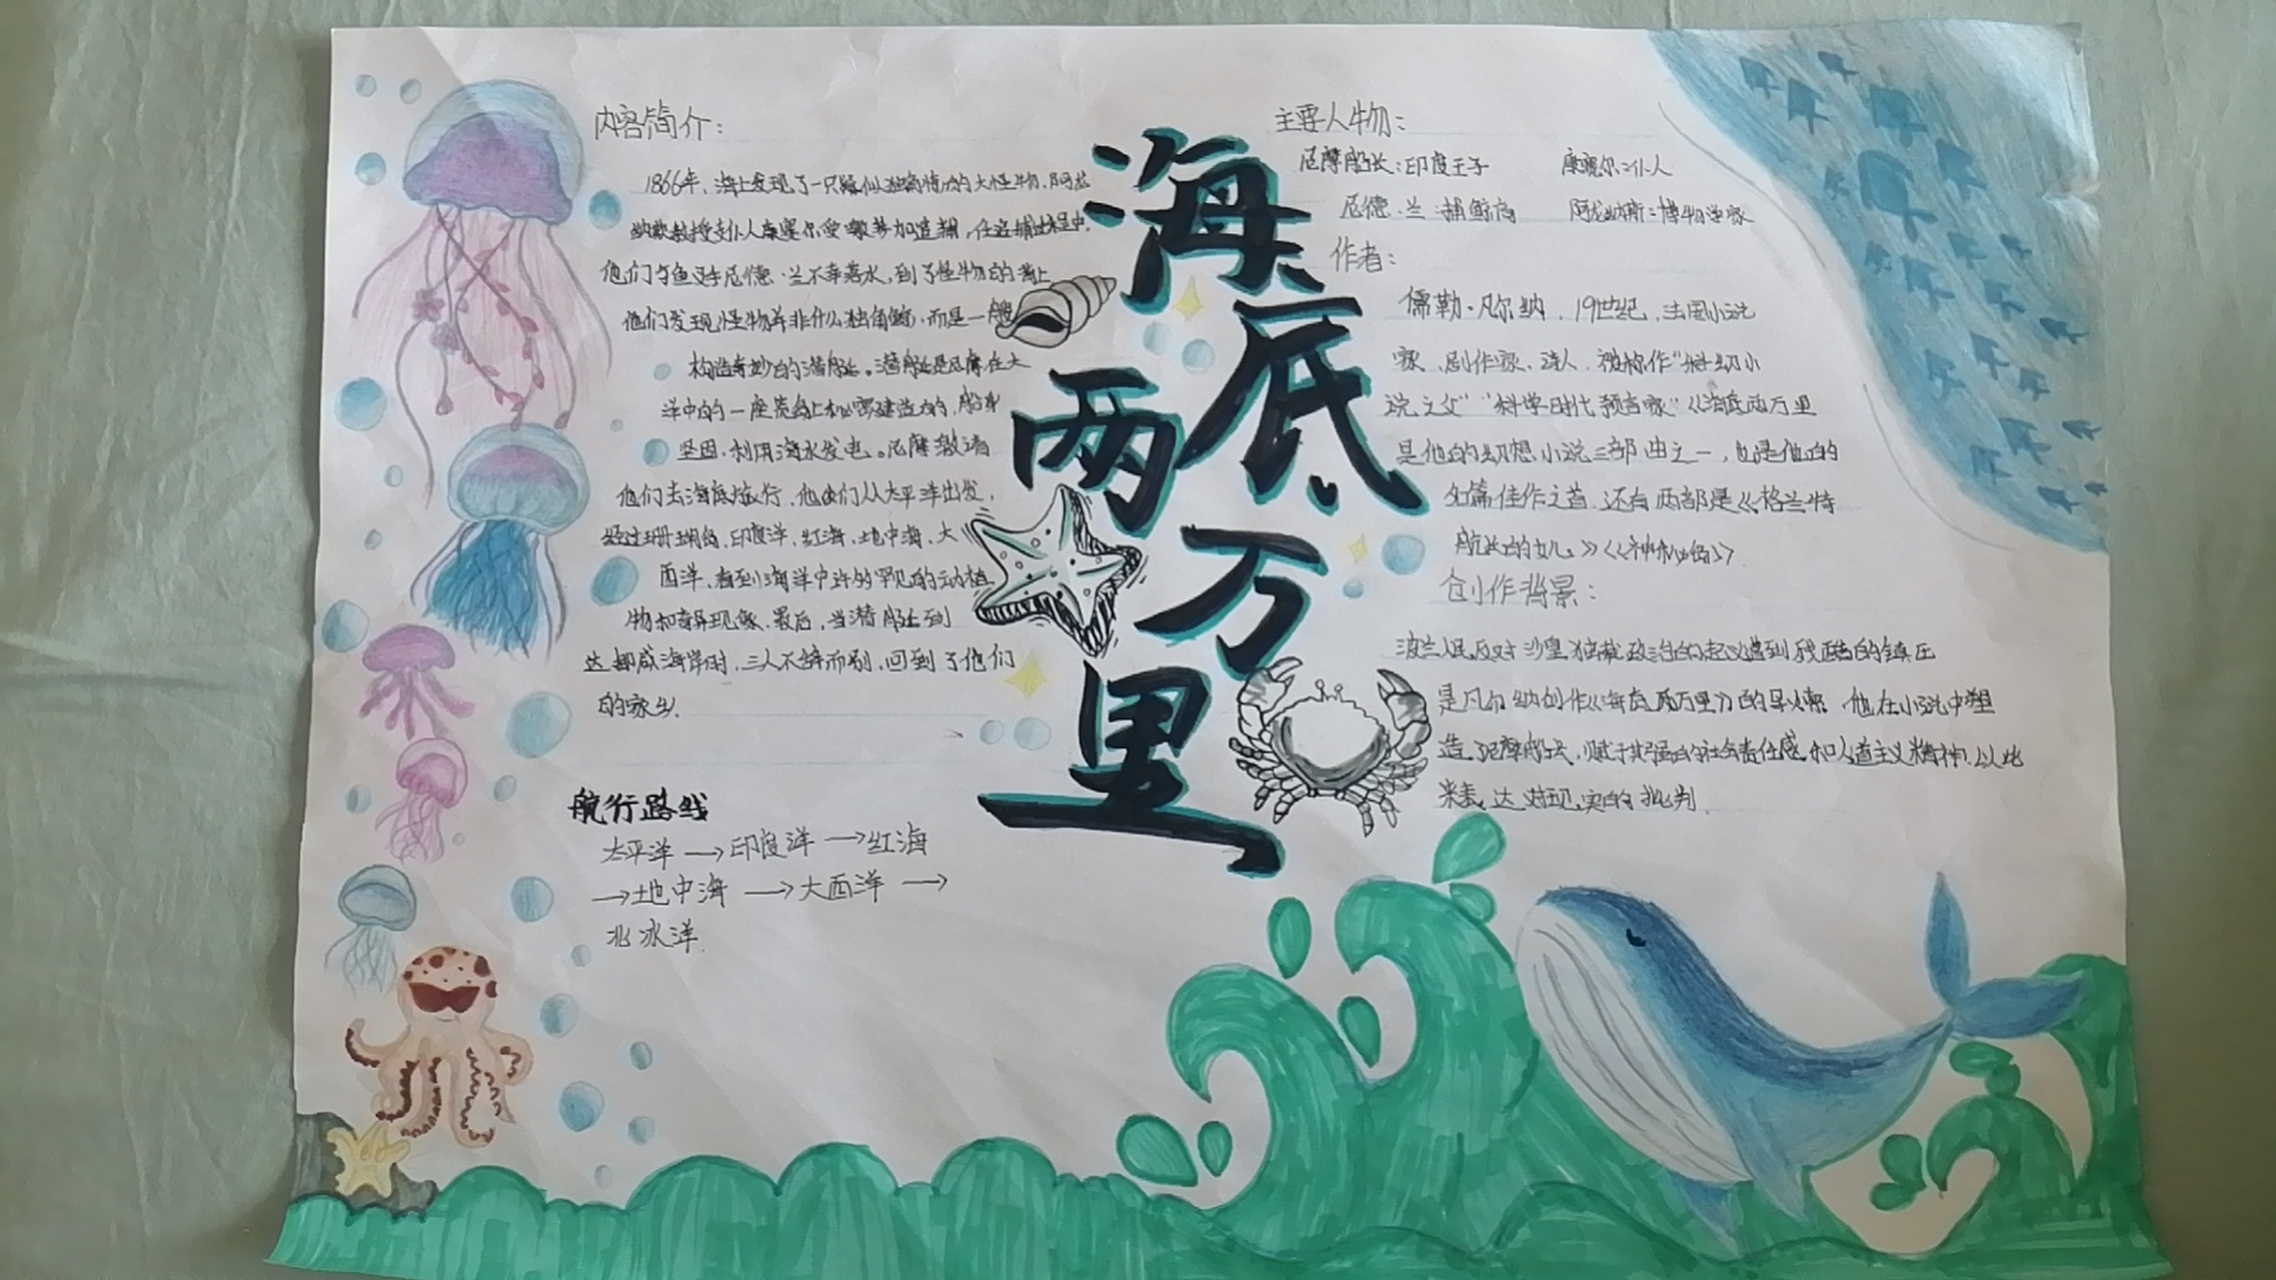 海底两万里
内容简介：
1866年，海上发现了一只疑似独角鲸的大怪物，阿龙
纳斯教授和仆人康塞尔受邀参加追捕，在追捕过程中，
他们与鱼叉手尼德·兰不幸落水，到了怪物的背上
他们发现怪物并非什么独角鲸，而是一艘
构造奇妙的潜艇。潜艇是尼摩在大
洋中的一座荒岛上秘密建造的，船身
坚固，利用海水发电。尼摩邀请
他们去海底旅行，他们从太平洋出发，
经过珊瑚岛，印度洋，红海，地中海，大
西洋，看到海洋中许多罕见的动植
物和奇异现象，最后，当潜艇到
达挪威海岸时，三人不辞而别，回到了他们
的家乡。
航行路线
太平洋→印度洋→红海
→地中海→大西洋→
北冰洋
主要人物：
尼摩船长：印度王子 康塞尔：仆人
尼德·兰：捕鲸高 阿龙纳斯：博物学家
作者：
儒勒·凡尔纳，19世纪，法国小说
家、剧作家、诗人，被称作“科幻小
说之父”“科学时代预言家”《海底两万里
是他的幻想小说三部曲之一，也是他的
名篇佳作之首，还有两部是《格兰特
船长的女儿》《神秘岛》
创作背景：
波兰人民反对沙皇独裁政治的起义遭到残酷的镇压
是凡尔纳创作《海底两万里》的导火索 他在小说中塑
造尼摩船长，赋予其强的社会责任感和人道主义精神，以此
来表达对现实的批判